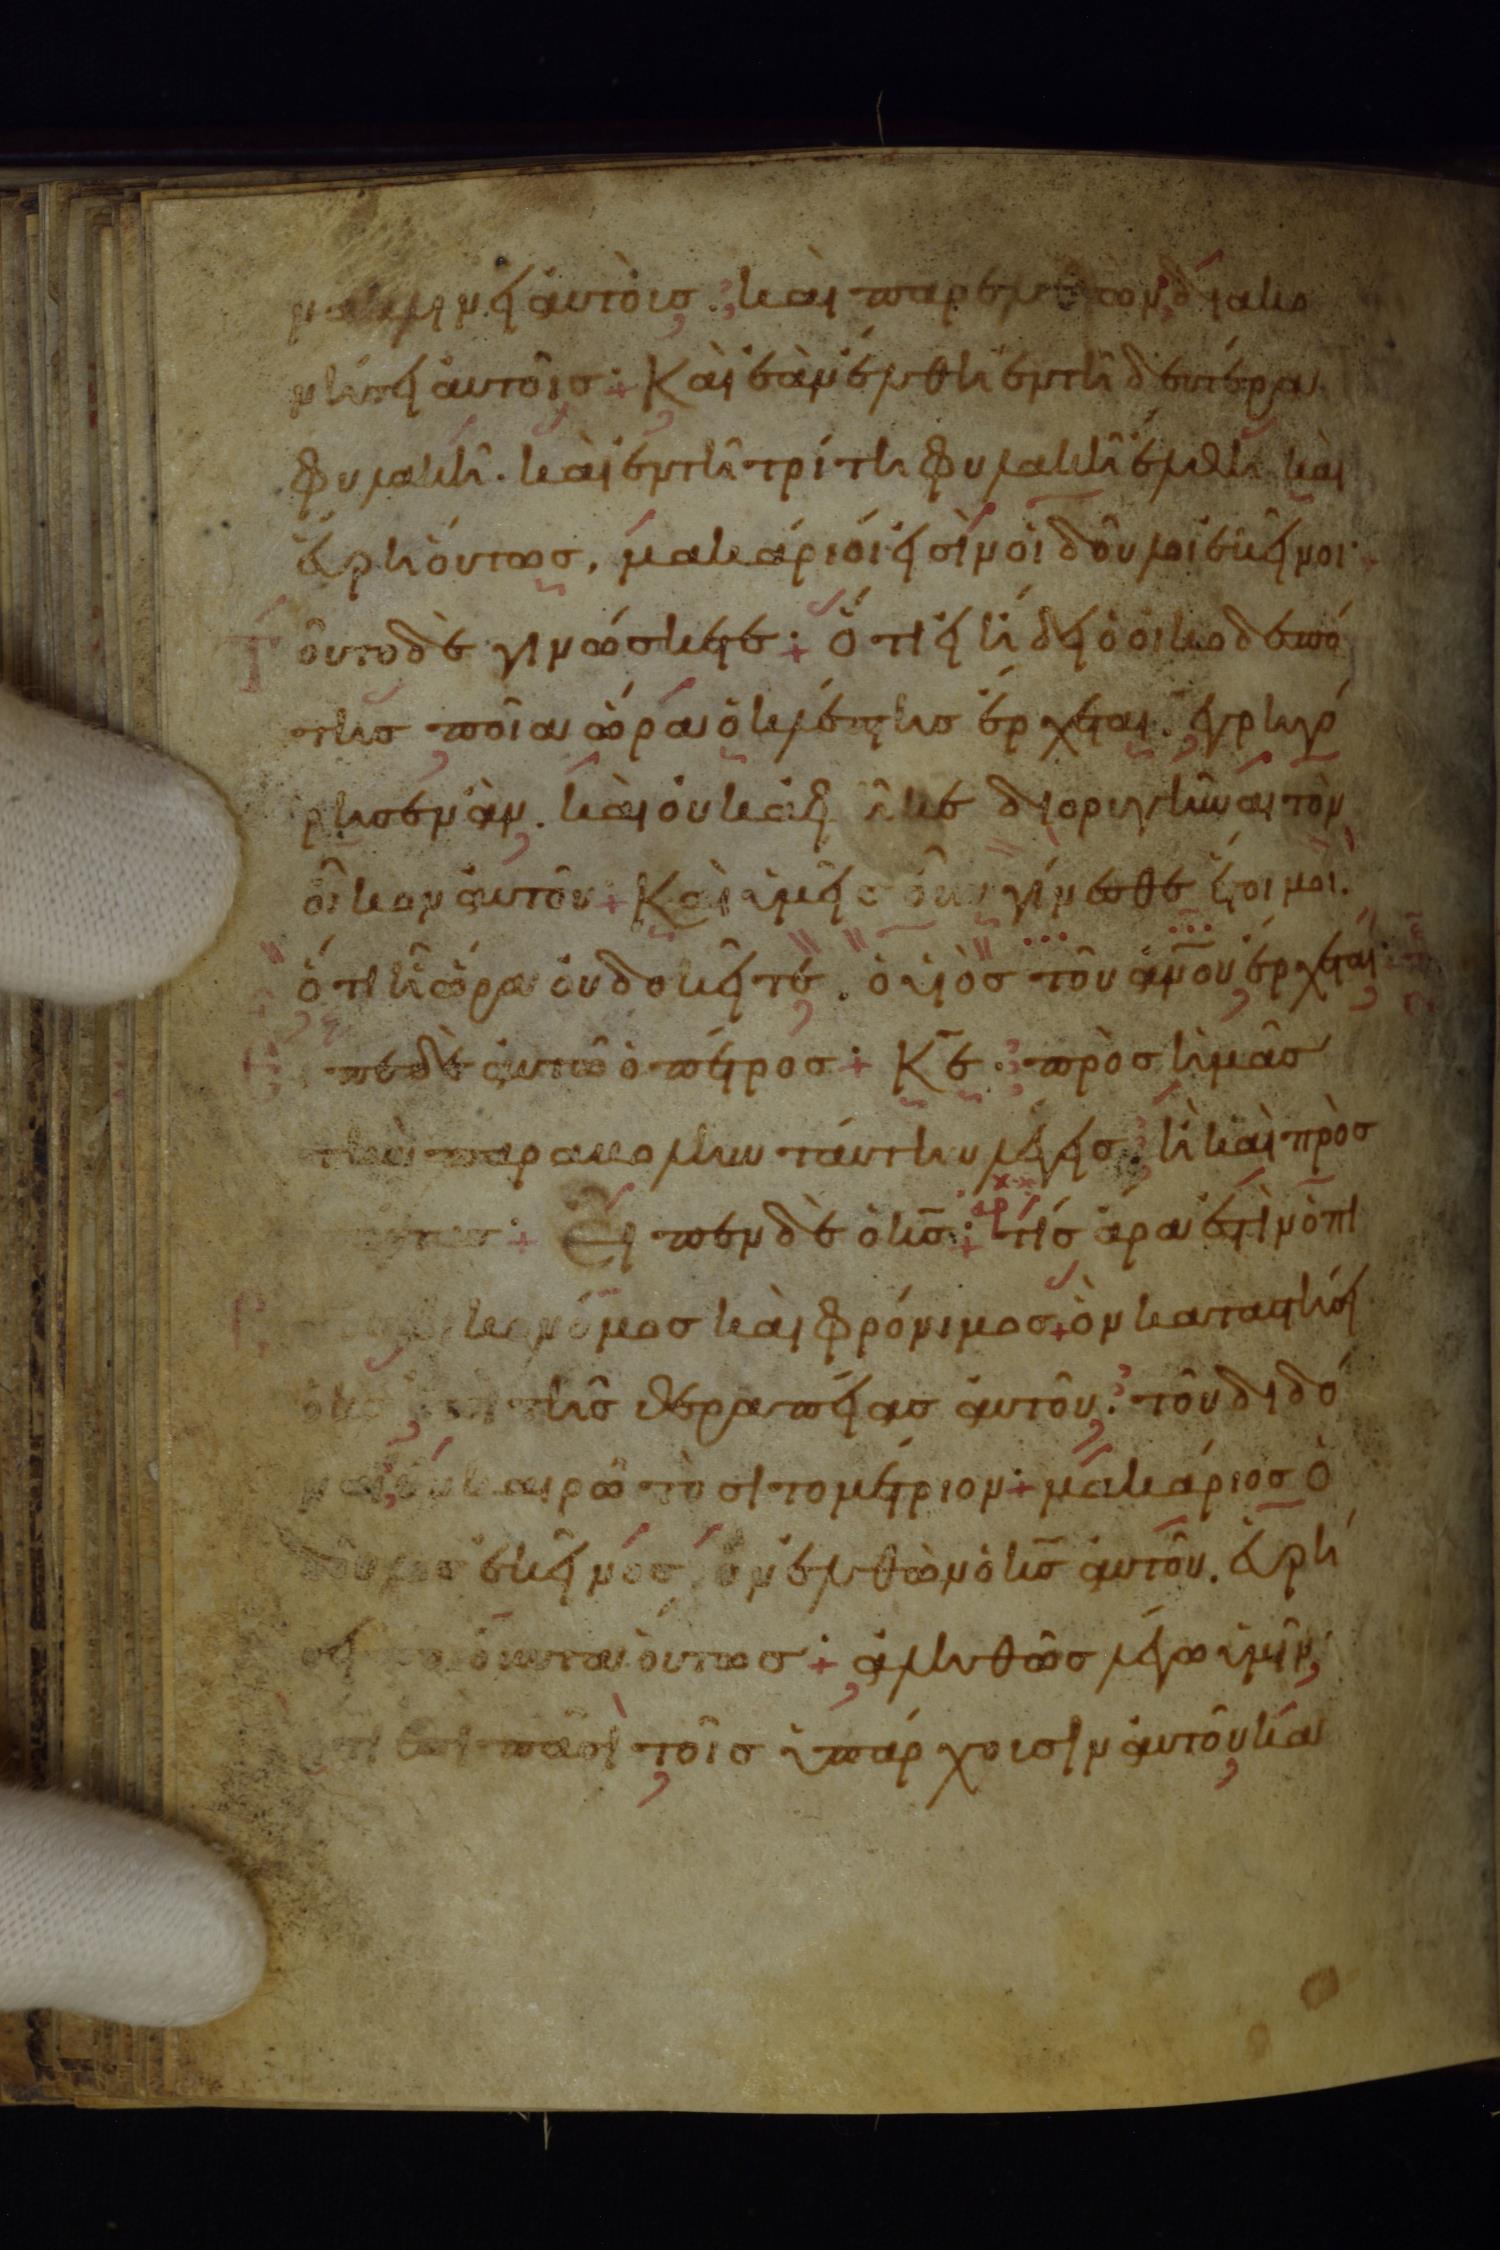 νακλινεῖ αὐτοὺς· καὶ παρελθὼν διακο
νήσει αὐτοῖς + Καὶ ἐὰν ἔλθη ἐν τῆ δευτέρα
φυλακῆ. καὶ ἐν τῆ τρίτη φυλακῆ ἔλθη καὶ
εὕρη οὕτως, μακάριοί εἰσιν οἱ δοῦλοι ἐκεῖνοι·
Τοῦτο δὲ γινώσκετε + ὅτι εἰ ἤδει ὁ οἰκοδεσπό
της ποία ὥρα ὁ κλέπτης ἔρχεται. ἐγρηγό
ρησεν ἂν. καὶ οὐκ ἀφῆκε διορυγῆναι τὸν
οἶκον αὐτοῦ + Καὶ ὑμεῖς οὖν γίνεσθε ἕτοιμοι.
ὅτι ἧ ὥρα οὐ δοκεῖτε. ὁ υἱὸς τοῦ ἀν̅ου ἔρχεται·
πε δὲ αὐτῶ ὁ πέτρος + Κ̅ε. πρὸς ἡμᾶς
τὴν παραβολὴν ταύτην λέγεις. ἢ καὶ πρὸς
πάντας + Εἶπεν δὲ ὁ κ̅ς + τίς ἄρα ἐστὶν ὁ πι
οἰκονόμος καὶ φρόνιμος + ὃν καταστήσει
ὁ κ̅ς ἐπὶ τῆς θεραπείας αὐτοῦ· τοῦ διδό
ναι ἐν καιρῶ τὸ σιτομέτριον + μακάριος ὁ
δοῦλος ἐκεῖνος, ὃν ἐλθὼν ὁ κ̅ς αὐτοῦ. εὕρη
σει ποιοῦντα οὕτως + ἀληθῶς λέγω ὑμῖν,
ὅτι ἐπὶ πᾶσι τοῖς ὑπάρχουσιν αὐτοῦ κα